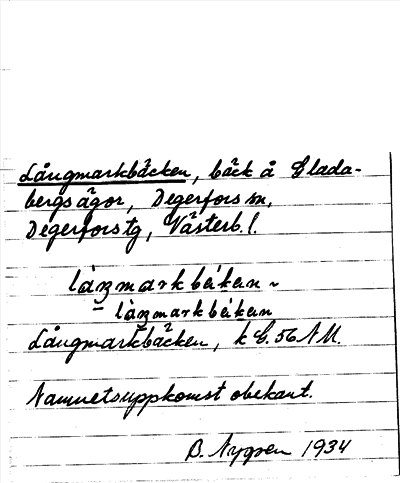 Långmarkbäcken, bäck å Glada-
bergsägor, Degerfors sn,
Degerforstg, Västerb. l.
làŋmarkbékan ~
– làŋmarkbékan
Långmarkbäcken, k G. 56 NM.
Namnetsuppkomst obekant.
B. 1934